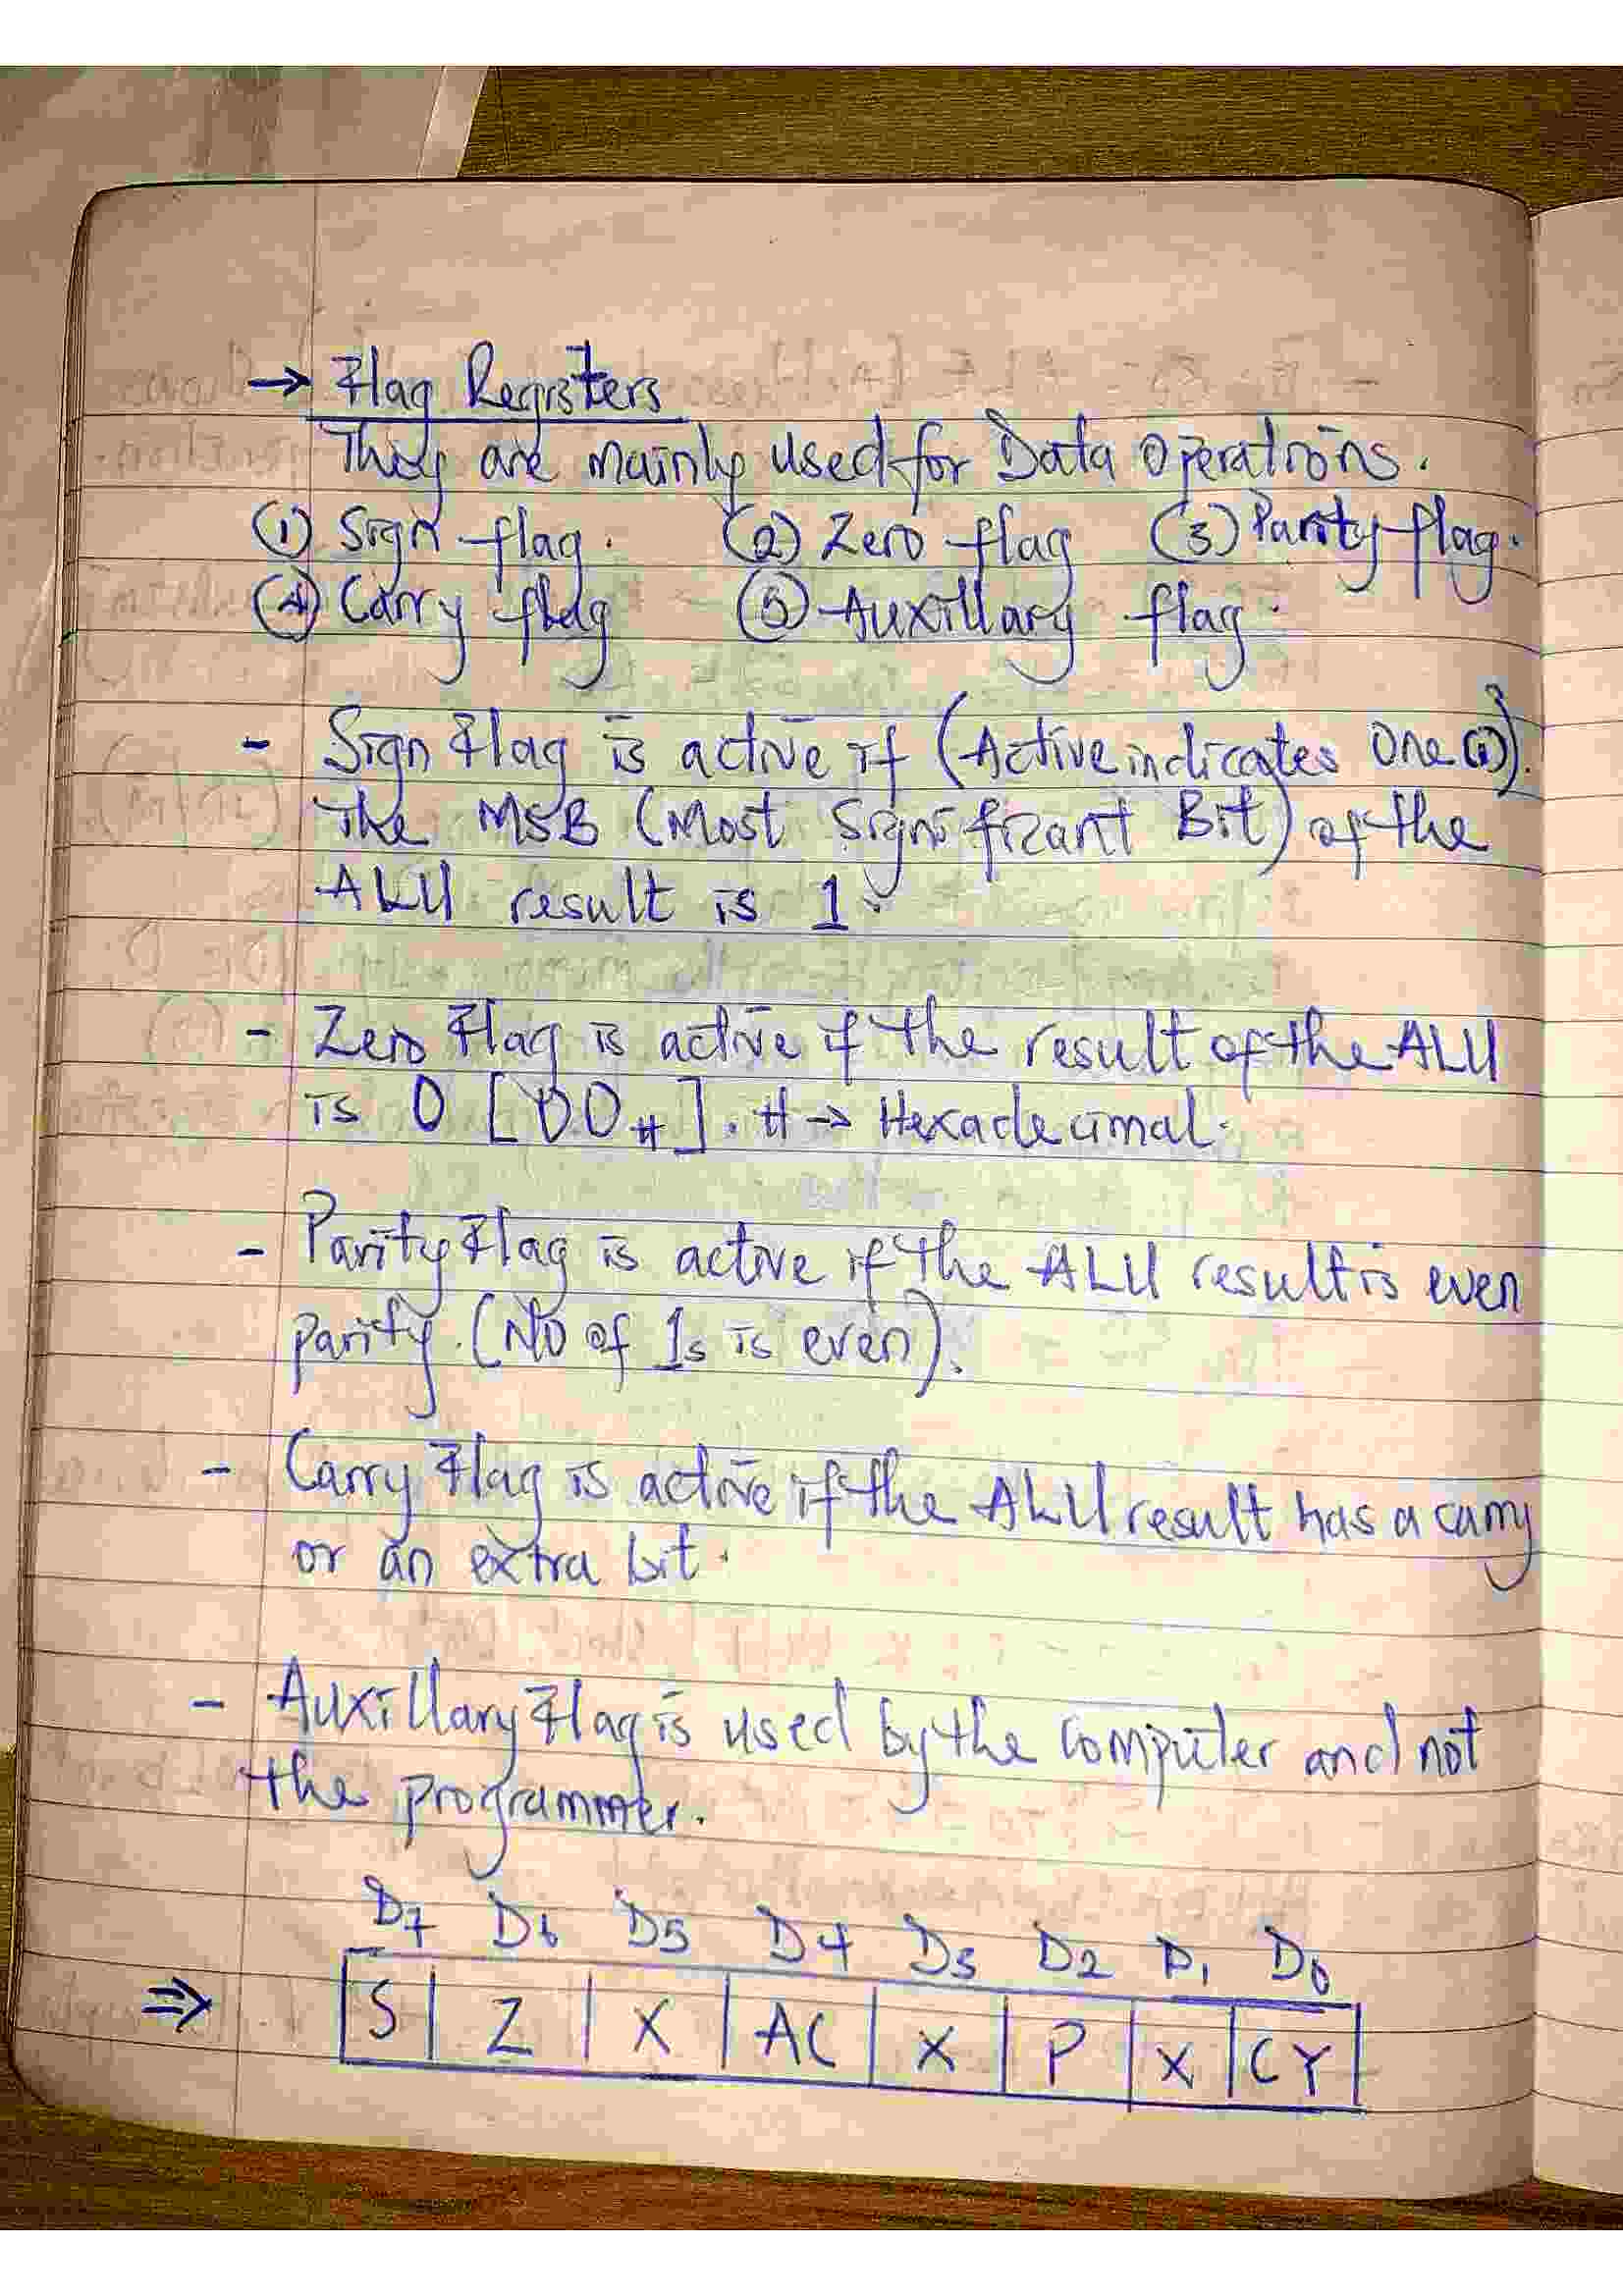 → Flag Registers
They are mainly used for Data Operations.
(1) Sign flag. (2) Zero flag (3) Parity flag.
(4) Carry flag (5) Auxillary flag.
- Sign Flag is active if (Active indicates One (1)).
The MSB (Most Significant Bit) of the
ALU result is 1.
- Zero Flag is active if the result of the ALU
is 0 [00H]. H → Hexadecimal.
- Parity Flag is active if the ALU result is even
parity. (No of 1s is even).
- Carry Flag is active if the ALU result has a carry
or an extra bit.
- Auxillary Flag is used by the computer and not
the programmer.
D7 D6 D5 D4 D3 D2 D1 D0
⇒ S Z X AC X P X CY